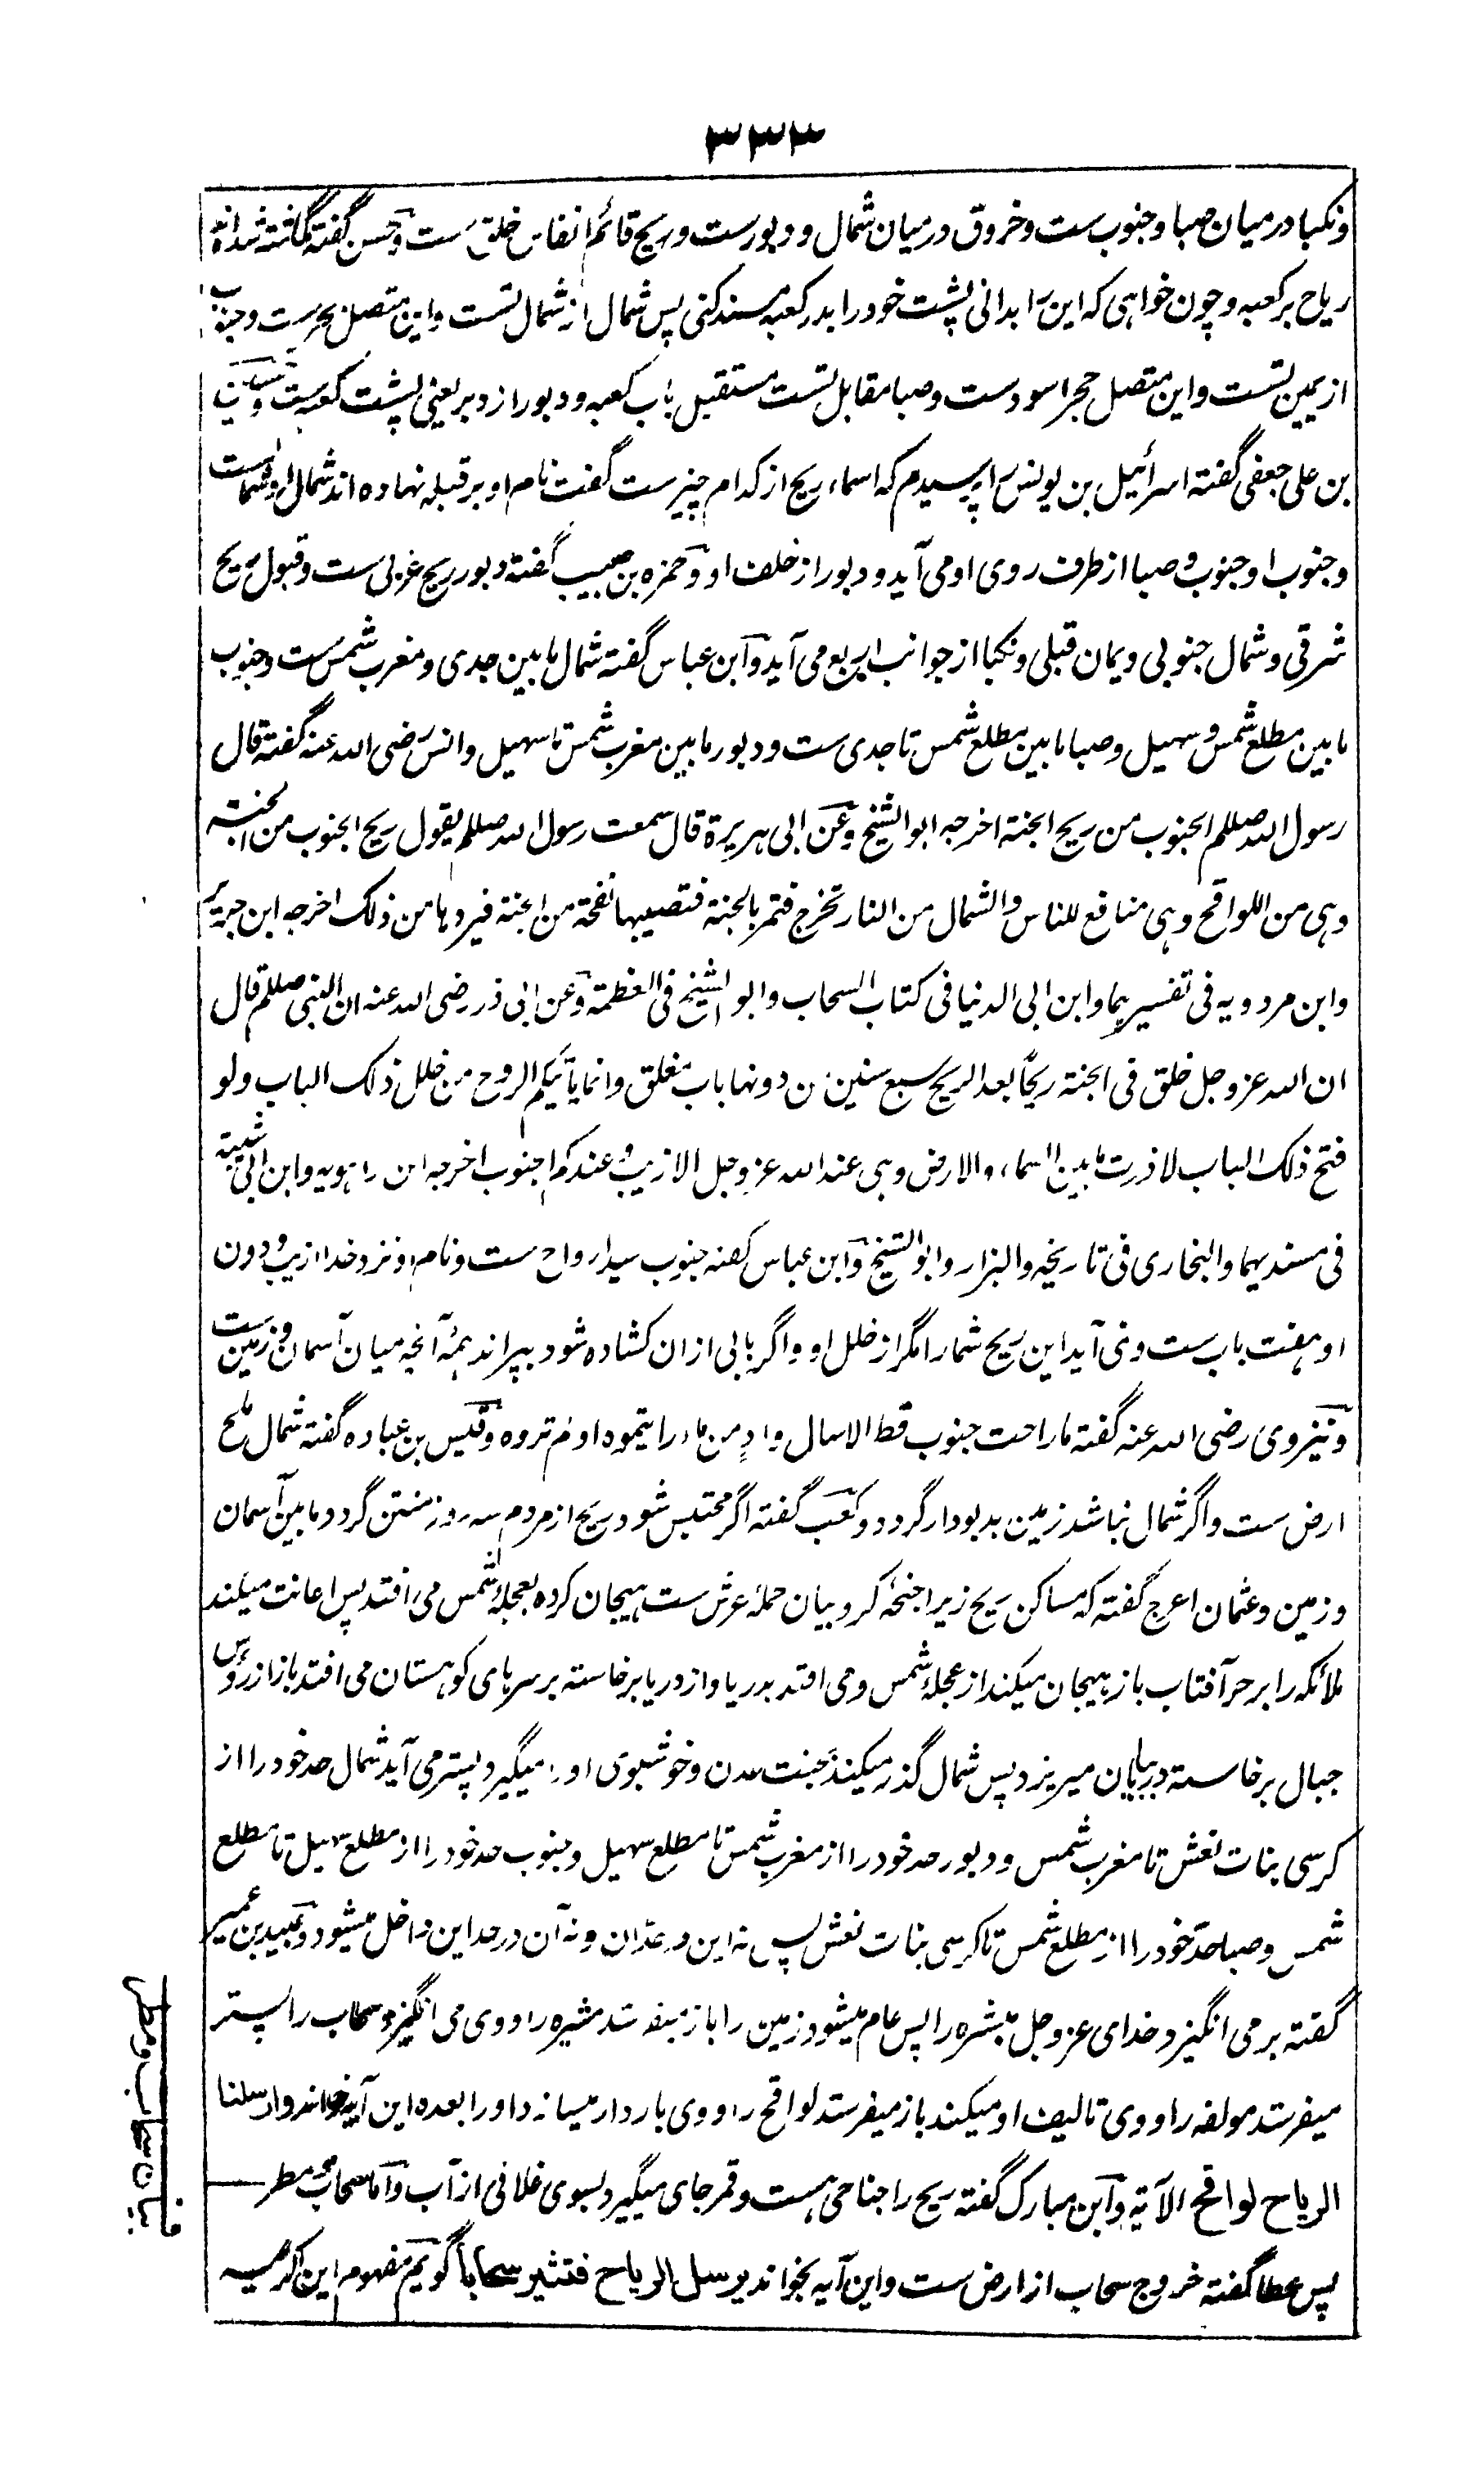 ۳۳۳
ونکبا درمیان صبا وجنوب ست وخروق درمیان شمال ودبورست وریح قائم انفاس خلق ست وحسن گفته گماشته شده اند
ریاح بر کعبه وچون خواهی که این را بدانی پشت خود را بدر کعبه مسند کنی پس شمال از شمال تست واین متصل حجرست وجنوب
از یمین تست واین متصل حجر اسودست وصبا مقابل تست مستقبل باب کعبه ودبور از دبر یعنی پشت کعبه ست وحسین
بن علی جعفی گفته اسرائیل بن یونس را پرسیدم که اسماء ریح از کدام چیزست گفت نام او بر قبله نهاده اند شمال او شمال ست
وجنوب او جنوب و صبا از طرف روی او می آید و دبور از خلف او وحمزه بن حبیب گفته دبور ریح غربی ست وقبول ریح
شرقی وشمال جنوبی ویمان قبلی ونکبا از جوانب اربع می آید وابن عباس گفته شمال مابین جدی ومغرب شمس ست وجنوب
مابین مطلع شمس وسهیل وصبا مابین مطلع شمس تا جدی ست ودبور مابین مغرب شمس تا سهیل وانس رضی الله عنه گفته قال
رسول الله صللم الجنوب من ریح الجنة اخرجه ابو الشیخ وعن ابی هریرة قال سمعت رسول الله صللم یقول ریح الجنوب من الجنة
وهی من اللواقح وهی منافع للناس والشمال من النار تخرج فتمر بالجنة فتصیبها نفحة من الجنة فبردها من ذلک اخرجه ابن جریر
وابن مردویه فی تفسیریهما وابن ابی الدنیا فی کتاب السحاب وابو الشیخ فی العظمة وعن ابی ذر رضی الله عنه ان النبی صللم قال
ان الله عز وجل خلق فی الجنة ریحًا بعد الریح سبع سنین من دونها باب مغلق وانما یأتیکم الروح من خلل ذلک الباب ولو
فتح ذلک الباب لاذرت مابین السماء والارض وهی عند الله عز وجل الازیب وعندکم الجنوب اخرجه ابن راهویه وابن ابی شیبة
فی مسندیهما والبخاری فی تاریخه والبزار وابو الشیخ وابن عباس گفته جنوب سید ارواح ست ونام او نزد خدا ازیب ودون
او هفت باب ست ونمی آید این ریح شما را مگر از خلل او واگر بابی ازان کشاده شود بپراند همه آنچه میان آسمان وزمین ست
ونیز وی رضی الله عنه گفته ما راحت جنوب قط الا سال وادٍ من ماء رایتموه او لم تروه وقیس بن عباده گفته شمال ملح
ارض ست واگر شمال نباشد زمین بدبودار گردد وکعب گفته اگر محتبس شود ریح از مردم سه روز منتن گردد مابین آسمان
وزمین وعثمان اعرج گفته که مساکن ریح زیر اجنحهٔ کروبیان حملهٔ عرش ست هیجان کرده بعجلهٔ شمس می افتد پس اعانت میکند
ملائکه را بر حر آفتاب باز هیجان میکند از عجلهٔ شمس ومی افتد بدریا واز دریا برخاسته بر سرهای کوهستان می افتد باز از رؤس
جبال برخاسته در بیابان میریزد پس شمال گذر میکند بجنت عدن وخوشبوی او را میگیرد پستر می آید شمال حد خود را از
کرسی بنات نعش تا مغرب شمس ودبور حد خود را از مغرب شمس تا مطلع سهیل وجنوب حد خود را از مطلع سهیل تا مطلع
شمس وصبا حد خود را از مطلع شمس تا کرسی بنات نعش پس نه این در حد آن ونه آن در حد این داخل میشود وعبید بن عمیر
گفته برمی انگیزد خدای عز وجل مبشره را پس عام میشود زمین را باز میفرستد مثیره را ووی می انگیزد سحاب را پستر
میفرستد مولفه را ووی تالیف او میکند باز میفرستد لواقح را ووی باردار میسازد او را بعده این آیه خواند وارسلنا
الریاح لواقح الآیة وابن مبارک گفته ریح را جناحی هست وقمر جای میگیرد بسوی غلافی از آب واما سحاب ومطر
پس عطا گفته خروج سحاب از ارض ست واین آیه بخواند یرسل الریاح فتثیر سحاباً گویم مفهوم این کریمه
بیان سحاب ومطر